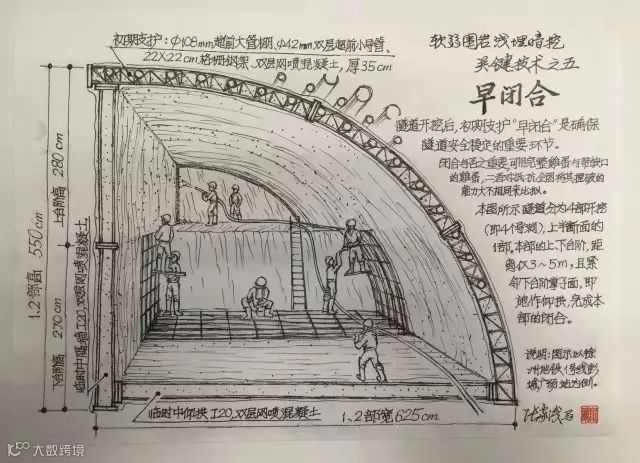 初期支护:Φ108mm超前大管棚、Φ42mm双层超前小导管、
22×22cm格栅钢架、双层网喷混凝土,厚35cm
软弱围岩浅埋暗挖
关键技术之五
早闭合
隧道开挖后,初期支护“早闭合”是确保
隧道安全稳定的重要环节。
闭合与否之重要,可用完整鸡蛋与带缺口
的鸡蛋,二者
能力大不相同来比拟。
本图所示隧道分为4部开挖
(即4个导洞),上半断面的
1部。本部的上、下台阶,距
离仅3~5m,且紧
邻下台阶掌子面,即
施作仰拱,完成本
部的闭合。
说明:图示以徐
州地铁1号线彭
城广场站为例。
1、2部高 550cm
上台阶高 280cm
下台阶高 270cm
临时中隔墙I20、双层网喷混凝土
临时中仰拱I20、双层网喷混凝土
1、2部宽625cm
大数跨境